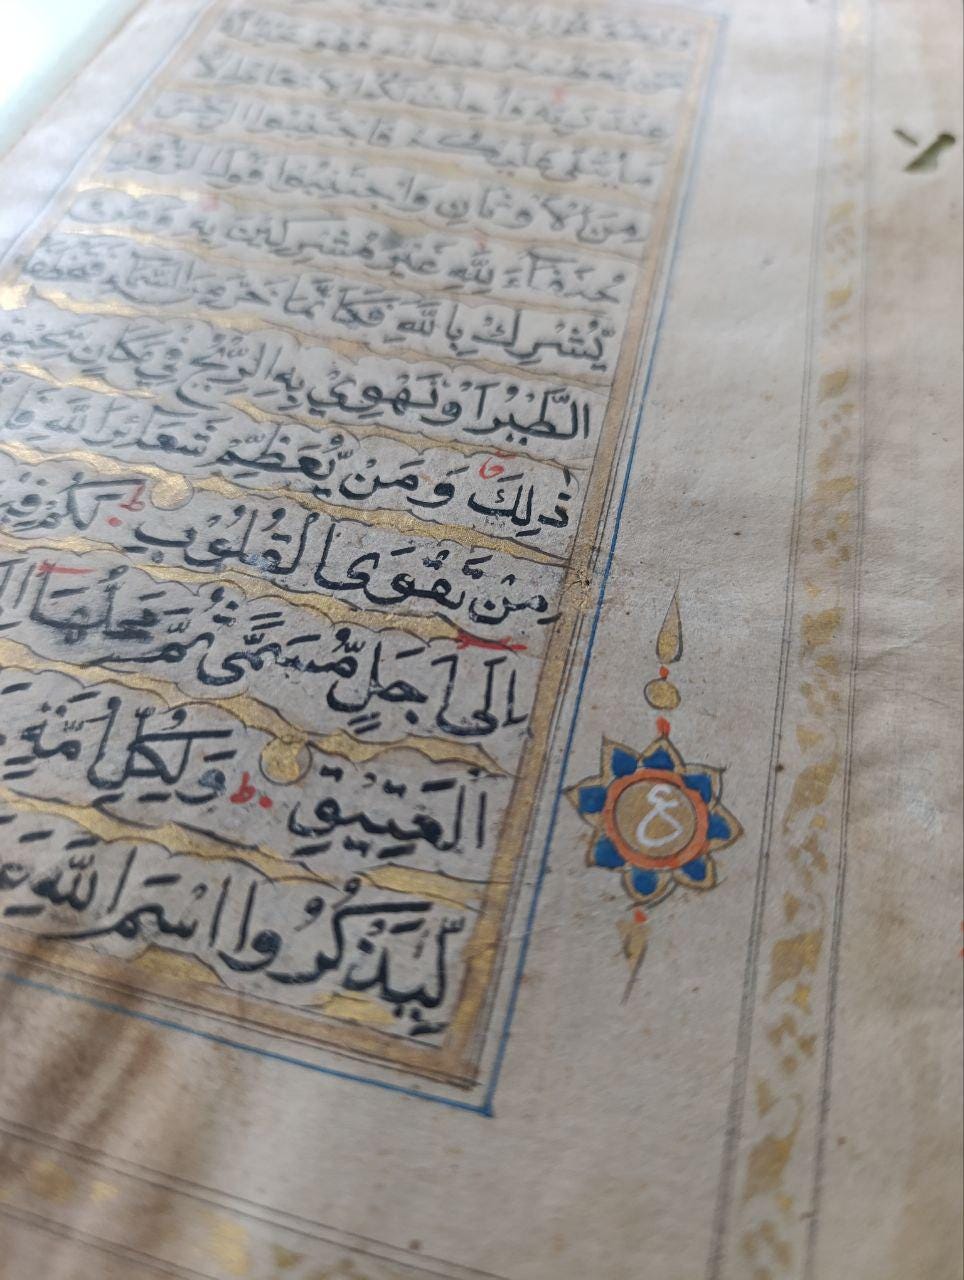 عِنْدَ رَبِّهٖ وَاُحِلَّتْ لَكُمُ الْاَنْعَامُ اِلَّا
مَا يُتْلٰى عَلَيْكُمْ فَاجْتَنِبُوا الرِّجْسَ
مِنَ الْاَوْثَانِ وَاجْتَنِبُوْا قَوْلَ الزُّوْرِ
حُنَفَآءَ لِلّٰهِ غَيْرَ مُشْرِكِيْنَ بِهٖ وَمَنْ
يُّشْرِكْ بِاللّٰهِ فَكَاَنَّمَا خَرَّ مِنَ السَّمَآءِ فَتَخْطَفُهُ
الطَّيْرُ اَوْ تَهْوِيْ بِهِ الرِّيْحُ فِيْ مَكَانٍ سَحِيْقٍ
ذٰلِكَ وَمَنْ يُّعَظِّمْ شَعَآئِرَ اللّٰهِ
مِنْ تَقْوَى الْقُلُوْبِ ط لَكُمْ فِيْهَا
اِلٰى اَجَلٍ مُّسَمًّى ثُمَّ مَحِلُّهَا
الْعَتِيْقِ ط وَلِكُلِّ اُمَّةٍ
لِّيَذْكُرُوا اسْمَ اللّٰهِ
ع